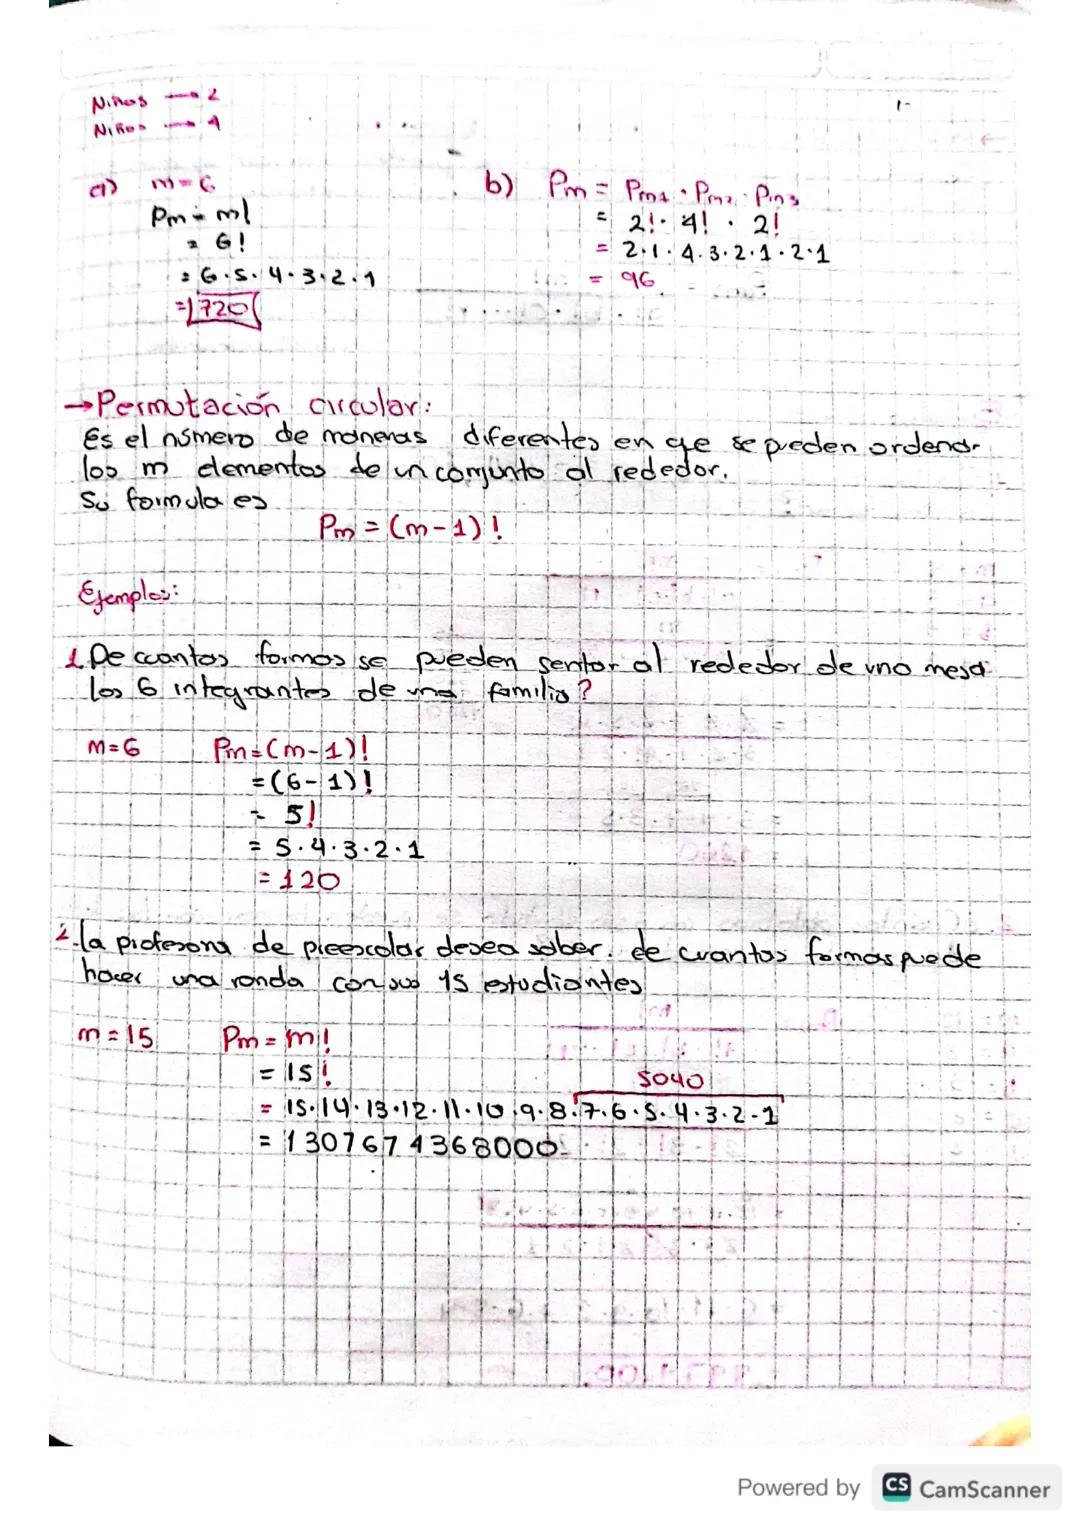 Niñas → 2
Niños → 4
a) m = 6
Pm = m!
= 6!
= 6·5·4·3·2·1
= 720
b) Pm = Pm1 · Pm2 · Pm3
= 2! · 4! · 2!
= 2·1·4·3·2·1·2·1
= 96
→Permutación circular:
Es el número de maneras diferentes en que se pueden ordenar
los m elementos de un conjunto al rededor.
Su formula es
Pm = (m-1)!
Ejemplos:
1. De cuantas formas se pueden sentar al rededor de una mesa
los 6 integrantes de una familia?
m=6 Pm=(m-1)!
=(6-1)!
= 5!
= 5·4·3·2·1
= 120
2. la profesora de preescolar desea saber. de cuantas formas puede
hacer una ronda con sus 15 estudiantes
m = 15 Pm = m!
= 15!
5040
= 15·14·13·12·11·10·9·8·7·6·5·4·3·2·1
= 1307674368000
Powered by CS CamScanner